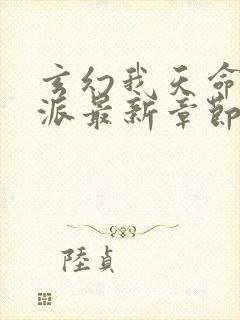 玄幻我天命
派最新章節
陸貞